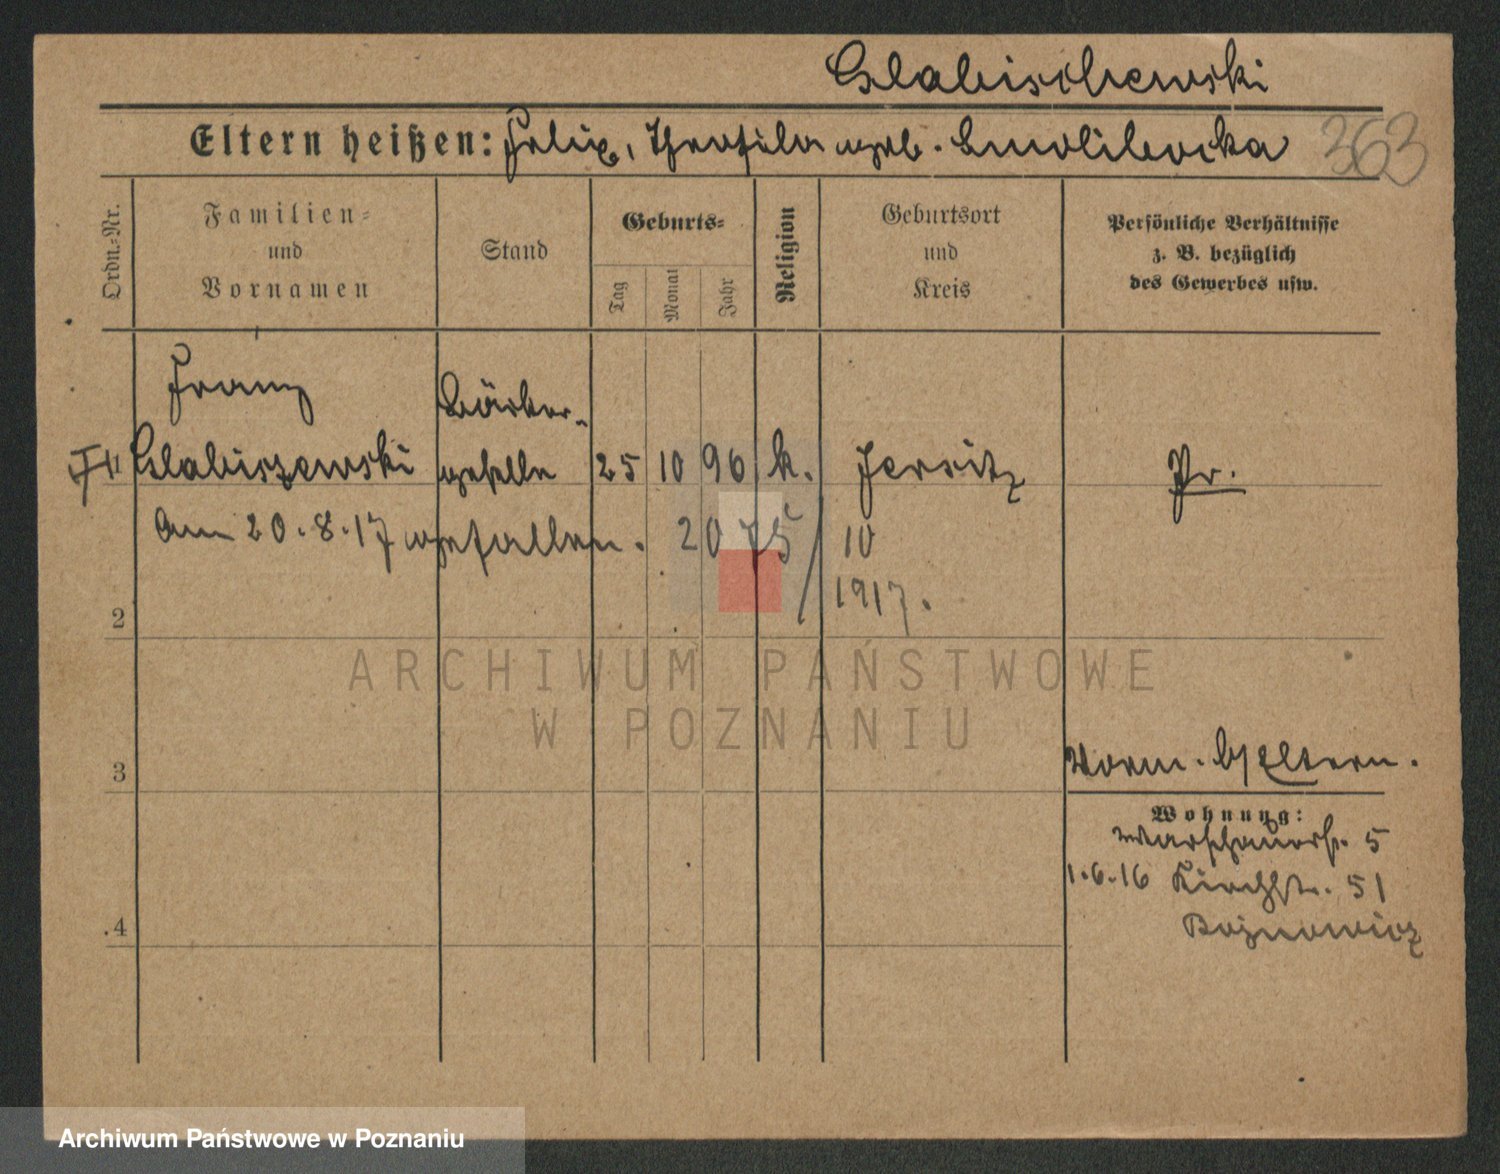 Glabischewski
Eltern heißen: Felix, Theofila geb. Smolibocka
363
Ordn.-Nr.
Familien- und Vornamen
Stand
Geburts-
Tag
Monat
Jahr
Religion
Geburtsort und Kreis
Persönliche Verhältnisse z. B. bezüglich des Gewerbes usw.
Franz
Glabiszewski
Bäcker-
geselle
25 10 96 k. Jersitz Pr.
Am 20.8.17 gefallen. 2075/10
1917.
2
3
4
Vorm. b/Eltern.
Wohnung:
Warschauerstr. 5
1.6.16 Kirchstr. 51
Boznowicz
ARCHIWUM PAŃSTWOWE
W POZNANIU
Archiwum Państwowe w Poznaniu